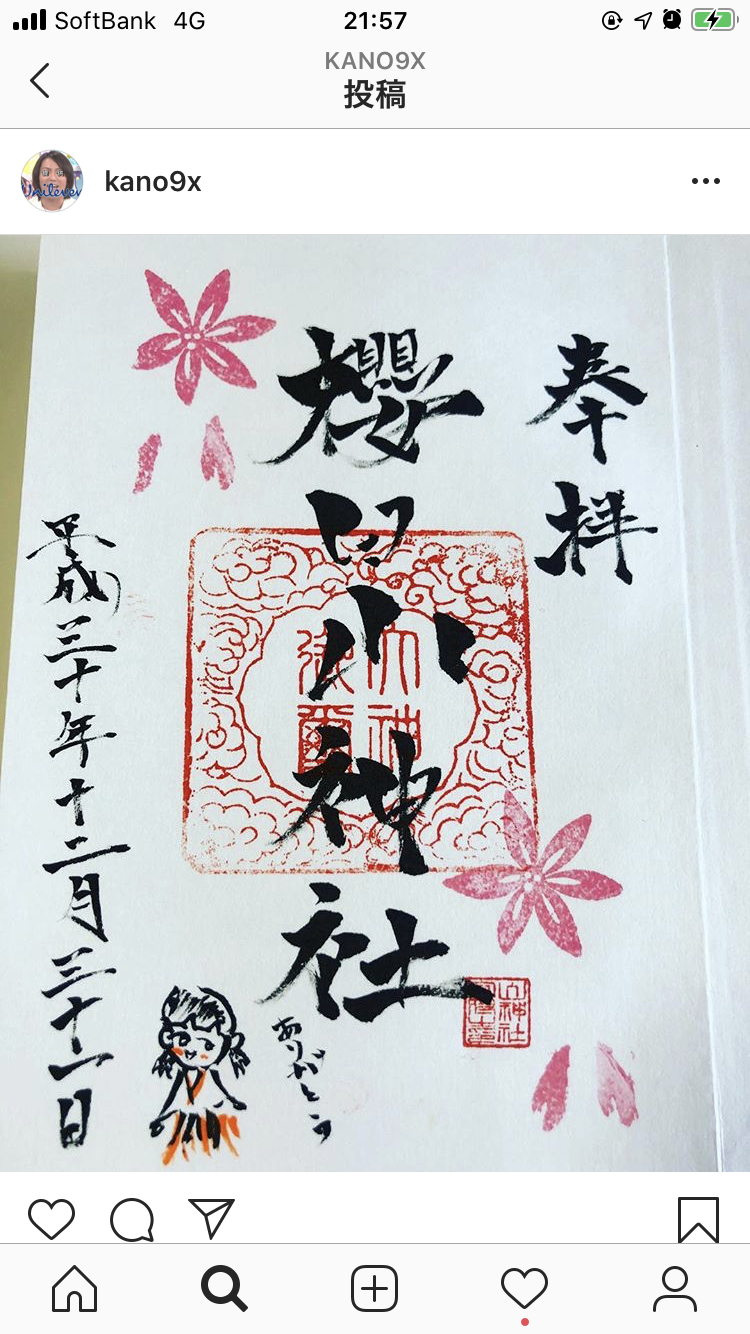 SoftBank 4G 21:57
KANO9X
投稿
kano9x
奉拝
櫻田山神社
平成三十年十二月三十一日
ありがとう